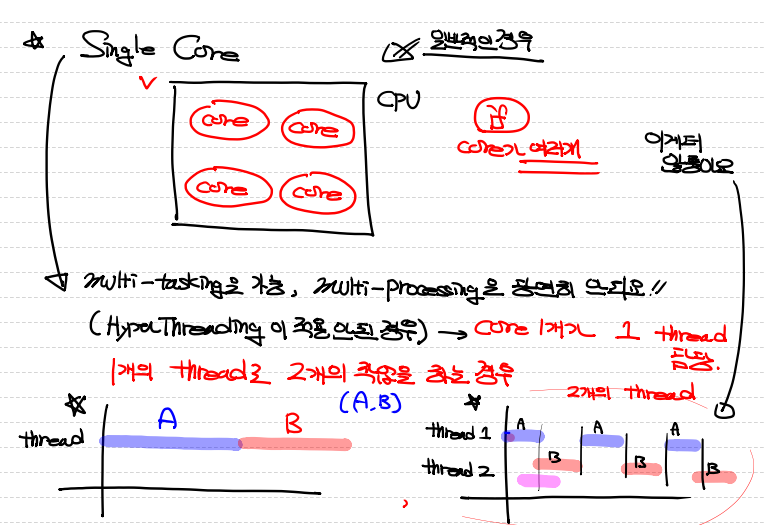 ☆ Single Core
※ 일반적인 경우
CPU
core core
core core
if
core가 여러개
이게더
일통이요
multi-tasking은 가능, multi-processing은 당연히 안되요!!
(HyperThreading이 적용 안된 경우) → core 1개가 1 thread
담당.
1개의 thread로 2개의 작업을 하는 경우
(A,B)
2개의 thread
☆
thread
A B
☆
thread 1
A A A
thread 2
B B B